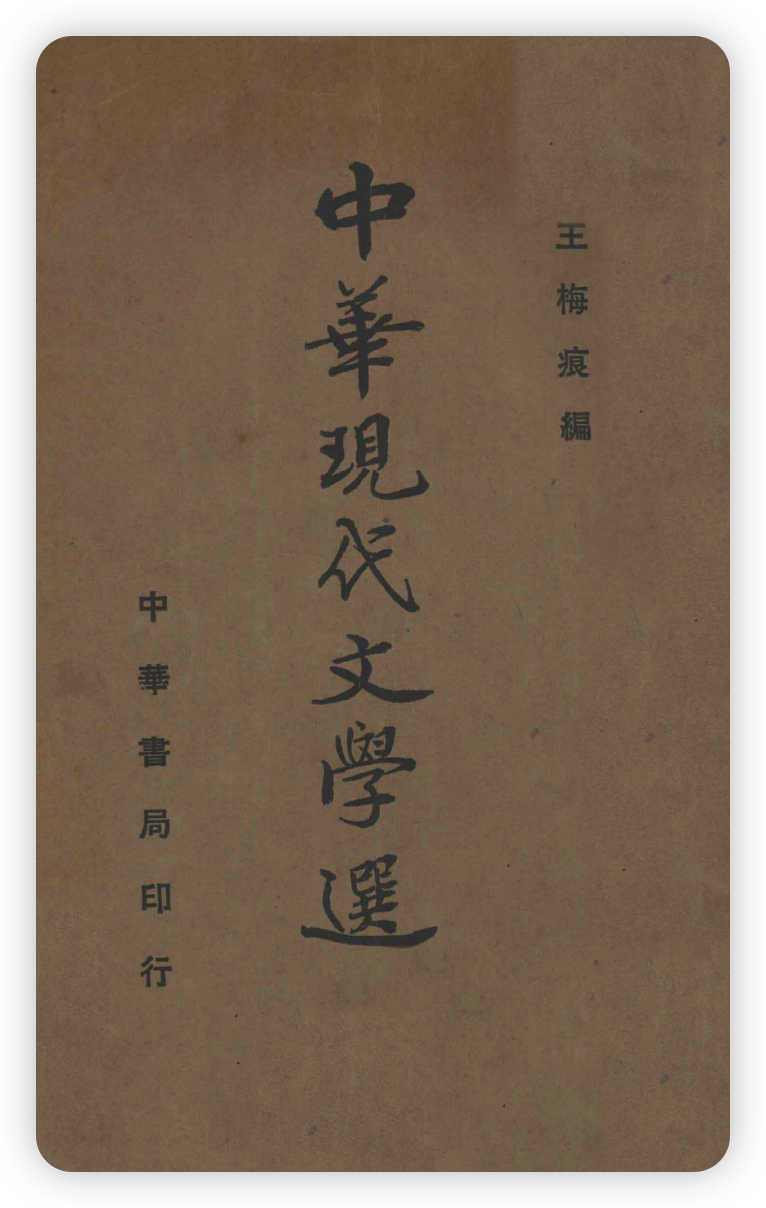 王梅痕編
中華現代文學選
中華書局印行